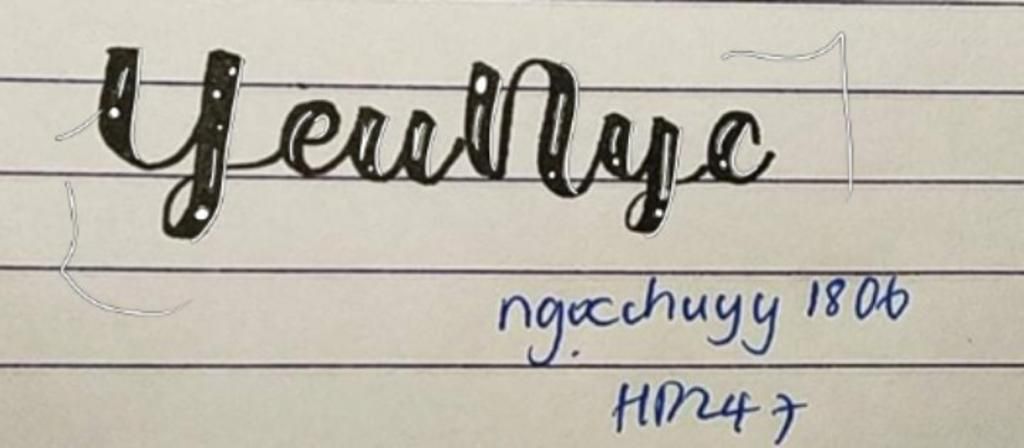 YeuNyc
ngọcchuyy 1806
HD247